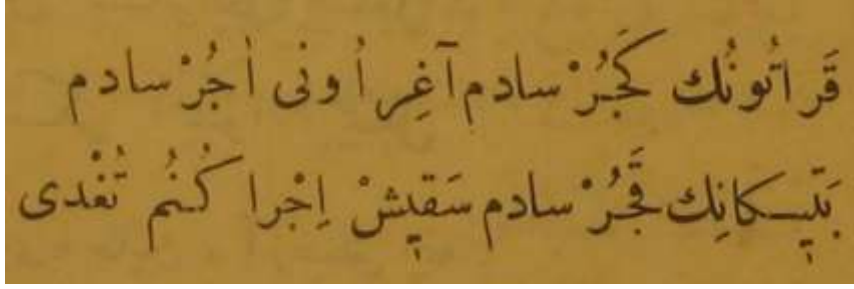 قَرا تُونُك كَجُرْسادم آغِر اُونى اُجُرْسادم
يَتِيكانِك قَجُرْسادم سَقِيشْ اِجْرا كُنُم تُغْدى